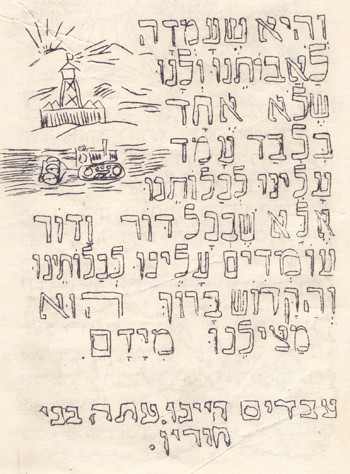 והיא שעמדה
לאבותנו ולנו
שלא אחד
בלבד עמד
עלינו לכלותנו
אלא שבכל דור ודור
עומדים עלינו לכלותינו
והקדוש ברוך הוא
מצילנו מידם.
עבדים היינו. עתה בני
חורין.